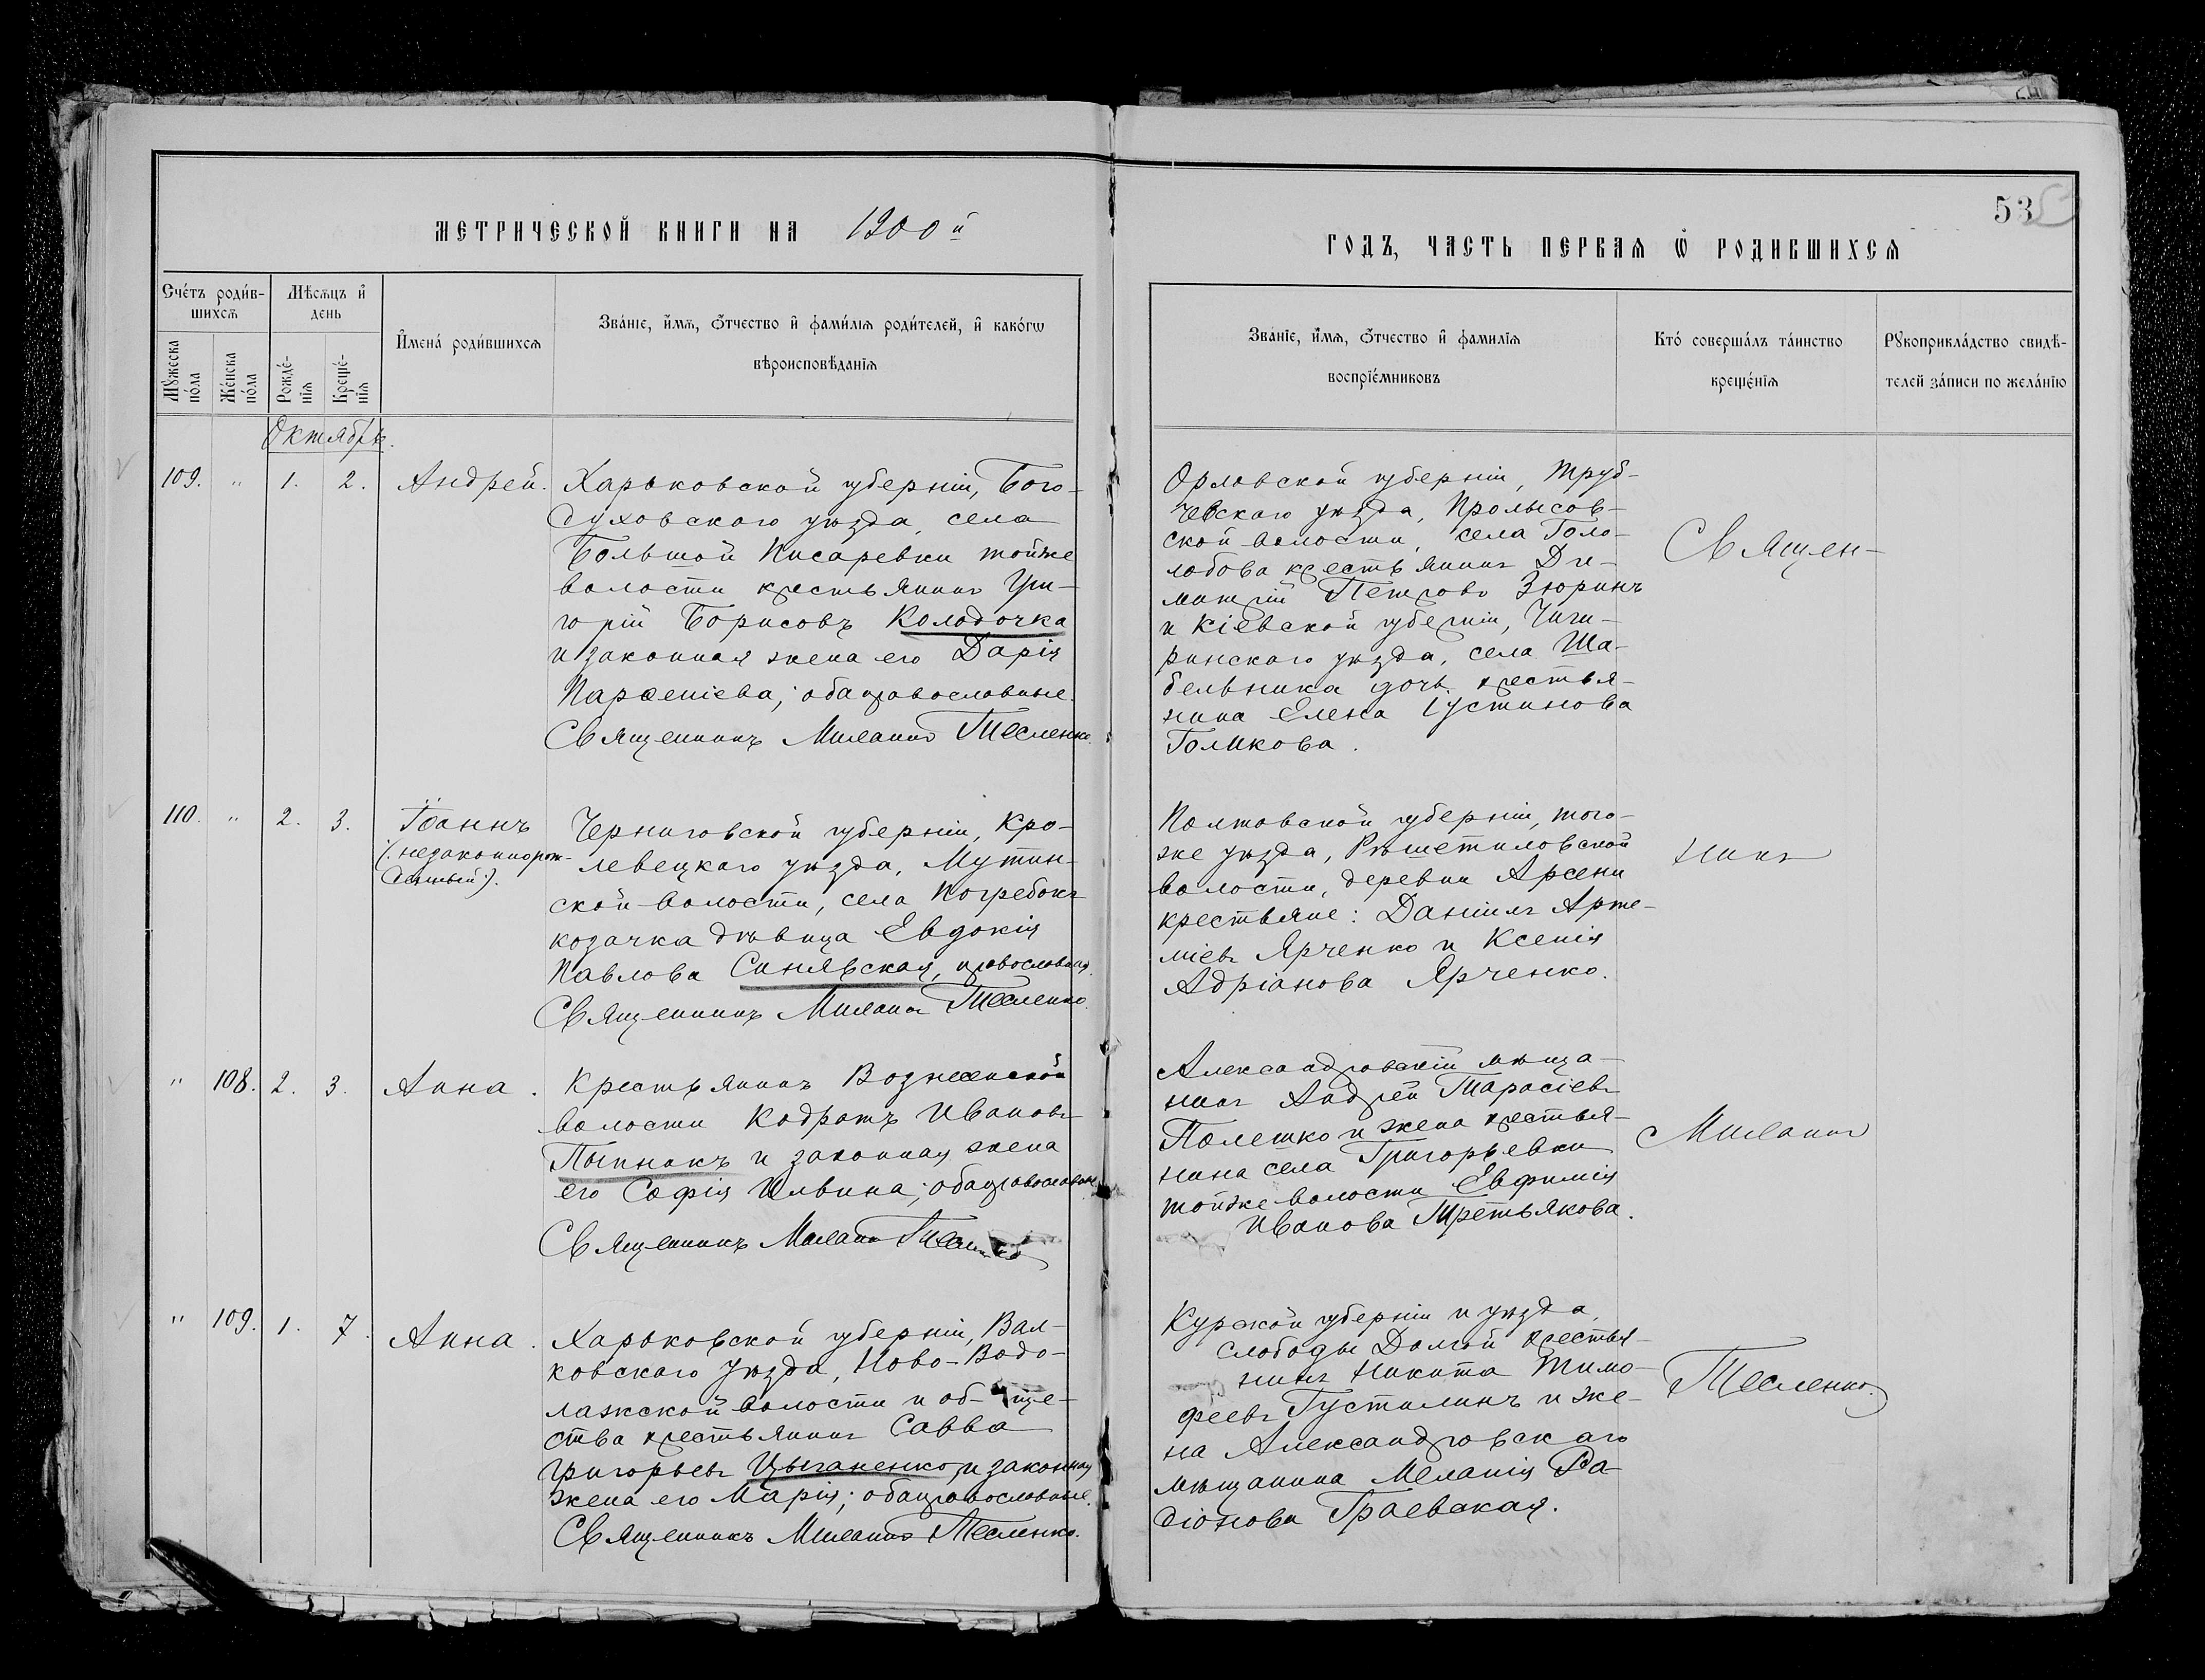 53
МЕТРИЧЕСКОЙ КНИГИ НА 1900й
ГОДЪ, ЧАСТЬ ПЕРВАЯ Ѡ РОДИВШИХСЯ
Сче́тъ роди́в-
шихсѧ
Мѣсяцъ и҆
день
Мꙋжеска
по́ла
Же́нска
по́ла
Рожде́-
нїѧ
Креще́-
нїѧ
И҆мена́ роди́вшихсѧ
Зва́нїе, и҆́мѧ, ѻ҆́тчество и҆ фами́лїѧ роди́телей, и҆ како́гѡ
вѣроисповѣ́данїѧ
Зва́нїе, и҆́мѧ, ѻ҆́тчество и҆ фами́лїѧ
воспрїе́мниковъ
Кто́ соверша́лъ та́инство
креще́нїѧ
Рꙋкоприкла́дство свидѣ́-
телей за́писи по жела́нїю
Октябрь.
109. " 1. 2. Андрей.
Харьковской губерніи, Бого-
духовскаго уѣзда, села
Большой Писаревки тойже
волости крестьянинъ Гри-
горій Борисовъ Колодочка
и законная жена его Дарія
Парѳеніева; оба православные.
Священникъ Миланъ Тесленко.
Орловской губерніи, Труб-
чевскаго уѣзда, Пролысов-
ской волости, села Голо-
лобова крестьянинъ Ди-
митрій Петровъ Зюринъ
и Кіевской губерніи, Чиги-
ринскаго уѣзда, села Ша-
бельника дочь крестья-
нина Елена Іустинова
Голикова.
Священ-
110. " 2. 3. Іоаннъ
(:незаконнорож-
денный:).
Черниговской губерніи, Кро-
левецкаго уѣзда, Мутин-
ской волости, села Погребокъ
козачка дѣвица Евдокія
Павлова Синявская, православная.
Священникъ Миланъ Тесленко.
Полтавской губерніи, того-
же уѣзда, Рѣшетиловской
волости, деревни Арсени
крестьяне: Даніилъ Арте-
міевъ Ярченко и Ксенія
Адріанова Ярченко.
никъ
" 108. 2. 3. Анна.
Крестьянинъ Вознесенской
волости Кодратъ Ивановъ
Пыпнакъ и законная жена
его Софія Ильина; оба православн.
Священникъ Миланъ Тесленко
Александровскій мѣща-
нинъ Андрей Тарасіевъ
Полешко и жена крестья-
нина села Григорьевки
тойже волости Евфимія
Иванова Третьякова.
Миланъ
" 109. 1. 7. Анна.
Харьковской губерніи, Вал-
ковскаго уѣзда, Ново-Водо-
лажской волости и об-ще-
ства крестьянинъ Савва
Григорьевъ Цыганенко, и законная
жена его Марія; оба православные.
Священникъ Миланъ Тесленко.
Курской губерніи и уѣзда,
слободы Долгой крестья-
нинъ Никита Тимо-
феевъ Густилинъ и же-
на Александровскаго
мѣщанина Меланія Ра-
діонова Граевская.
Тесленко.